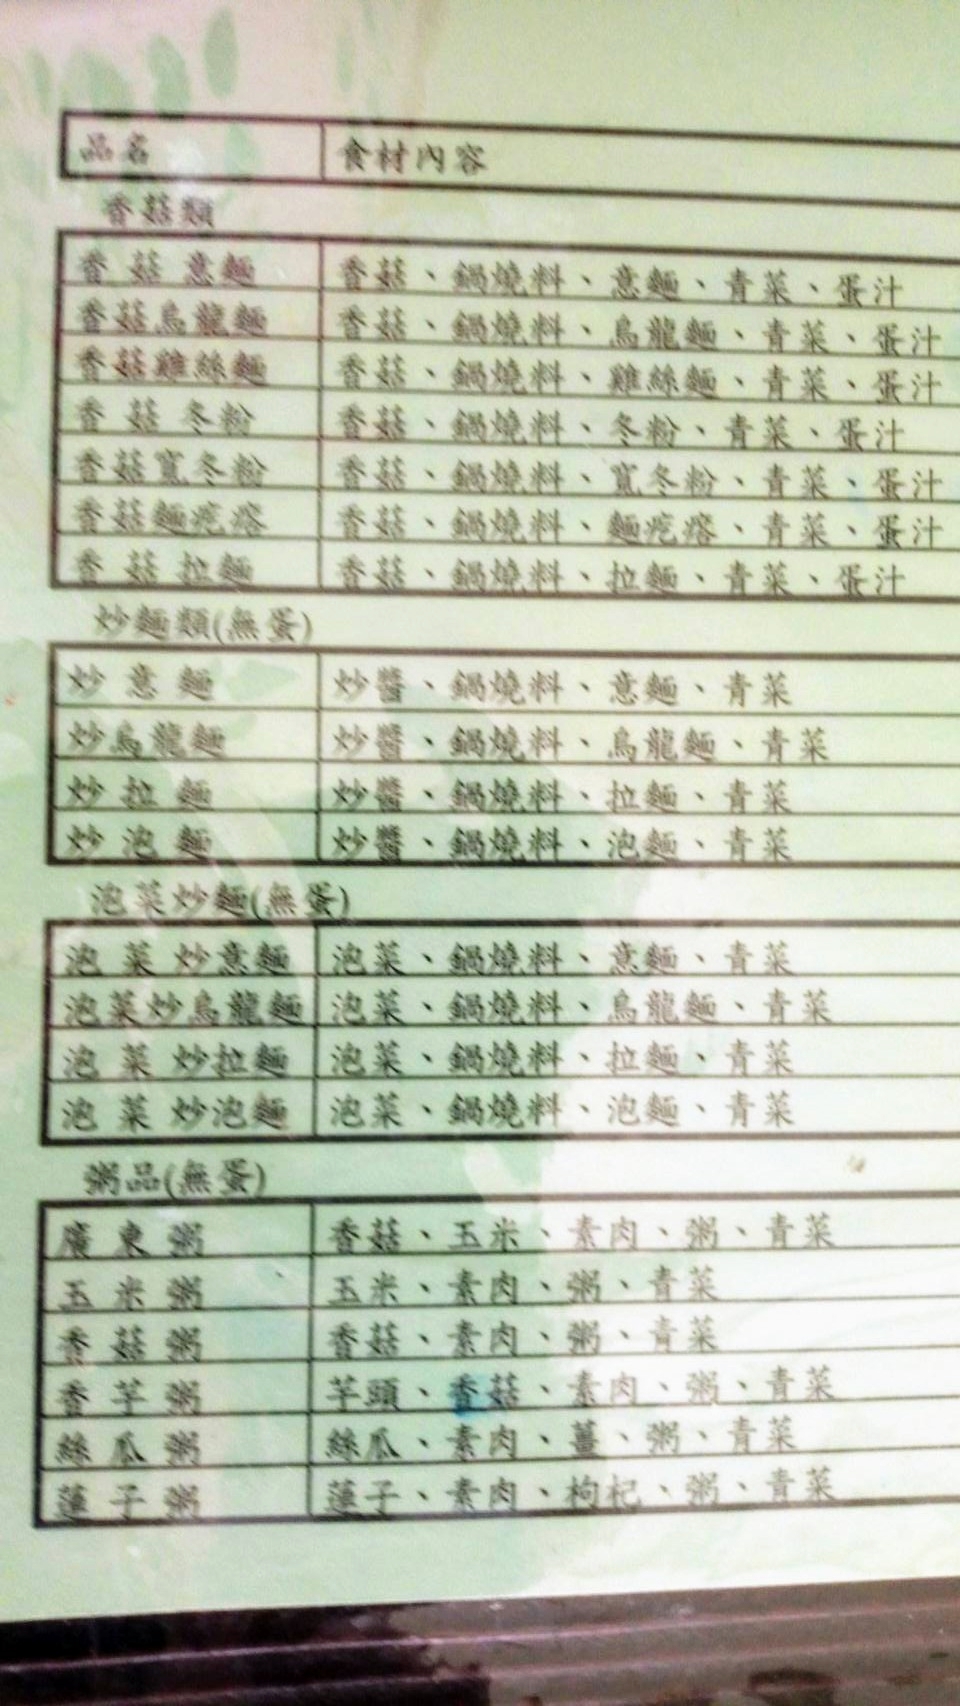 品名 食材內容
香菇類
香菇意麵 香菇、鍋燒料、意麵、青菜、蛋汁
香菇烏龍麵 香菇、鍋燒料、烏龍麵、青菜、蛋汁
香菇雞絲麵 香菇、鍋燒料、雞絲麵、青菜、蛋汁
香菇冬粉 香菇、鍋燒料、冬粉、青菜、蛋汁
香菇寬冬粉 香菇、鍋燒料、寬冬粉、青菜、蛋汁
香菇麵疙瘩 香菇、鍋燒料、麵疙瘩、青菜、蛋汁
香菇拉麵 香菇、鍋燒料、拉麵、青菜、蛋汁
炒麵類(無蛋)
炒意麵 炒醬、鍋燒料、意麵、青菜
炒烏龍麵 炒醬、鍋燒料、烏龍麵、青菜
炒拉麵 炒醬、鍋燒料、拉麵、青菜
炒泡麵 炒醬、鍋燒料、泡麵、青菜
泡菜炒麵(無蛋)
泡菜炒意麵 泡菜、鍋燒料、意麵、青菜
泡菜炒烏龍麵 泡菜、鍋燒料、烏龍麵、青菜
泡菜炒拉麵 泡菜、鍋燒料、拉麵、青菜
泡菜炒泡麵 泡菜、鍋燒料、泡麵、青菜
粥品(無蛋)
廣東粥 香菇、玉米、素肉、粥、青菜
玉米粥 玉米、素肉、粥、青菜
香菇粥 香菇、素肉、粥、青菜
香芋粥 芋頭、香菇、素肉、粥、青菜
絲瓜粥 絲瓜、素肉、薑、粥、青菜
蓮子粥 蓮子、素肉、枸杞、粥、青菜